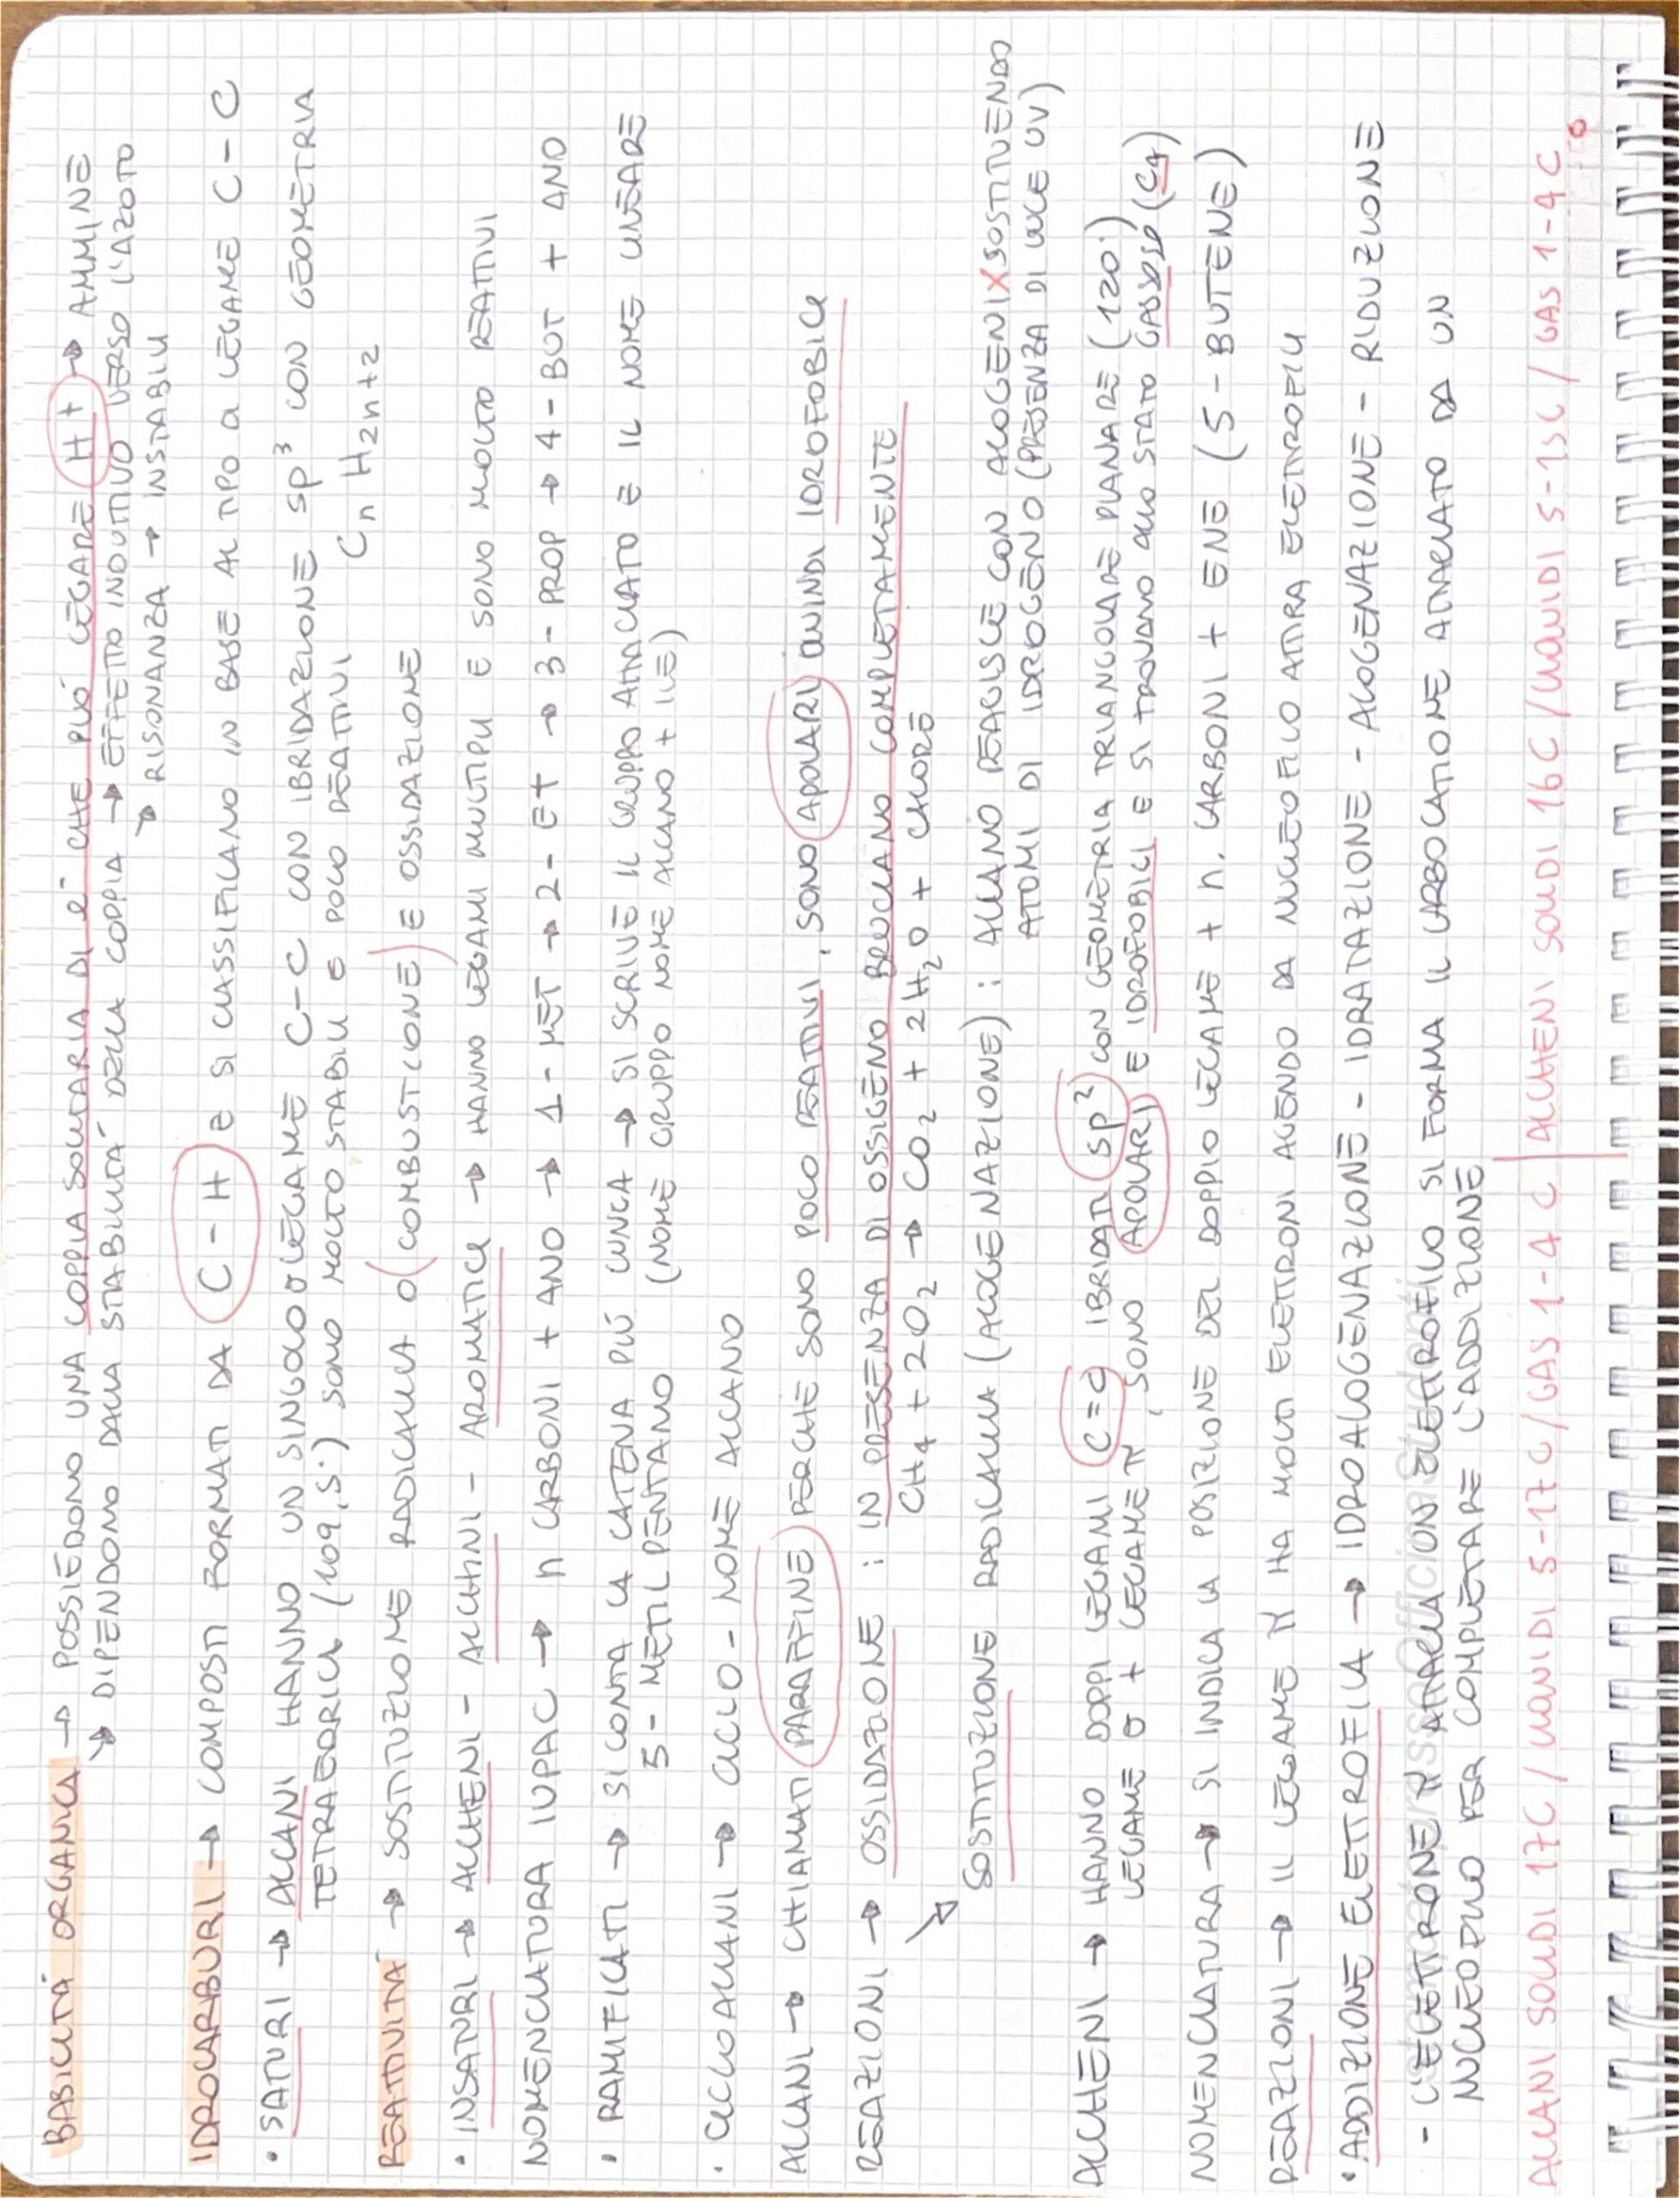 BASICITÁ ORGANICA → POSSIEDONO UNA COPPIA SOLITARIA DI e⁻ CHE PUÓ LEGARE H+ → AMMINE
↳ DIPENDONO DALLA STABILITÁ DELLA COPPIA → EFFETTO INDUTTIVO VERSO L'AZOTO
↳ RISONANZA → INSTABILI
IDROCARBURI → COMPOSTI FORMATI DA C-H E SI CLASSIFICANO IN BASE AL TIPO A LEGAME C-C
• SATURI → ALCANI HANNO UN SINGOLO σ LEGAME C-C CON IBRIDAZIONE sp³ CON GEOMETRIA
TETRAEDRICA (109,5°) SONO MOLTO STABILI E POCO REATTIVI CnH2n+2
REATTIVITÁ → SOSTITUZIONE RADICALICA O (COMBUSTIONE) E OSSIDAZIONE
• INSATURI → ALCHENI - ALCHINI - AROMATICI → HANNO LEGAMI MULTIPLI E SONO MOLTO REATTIVI
NOMENCLATURA IUPAC → n CARBONI + ANO → 1-MET → 2-ET → 3-PROP → 4-BUT + ANO
• RAMIFICATI → SI CONTA LA CATENA PIÚ LUNGA → SI SCRIVE IL GRUPPO ATTACCATO E IL NOME LINEARE
5-METIL PENTANO (NOME GRUPPO NOME ALCANO + ILE)
• CICLOALCANI → CICLO-NOME ALCANO
ALCANI → CHIAMATI PARAFFINE PERCHE SONO POCO REATTIVI, SONO APOLARI QUINDI IDROFOBICI
REAZIONI → OSSIDAZIONE : IN PRESENZA DI OSSIGENO BRUCIANO COMPLETAMENTE
CH₄ + 2O₂ → CO₂ + 2H₂O + CALORE
↘ SOSTITUZIONE RADICALICA (ALOGENAZIONE) : ALCANO REAGISCE CON ALOGENI X SOSTITUENDO
ATOMI DI IDROGENO (PRESENZA DI LUCE UV)
ALCHENI → HANNO DOPPI LEGAMI C=C IBRIDATI sp² CON GEOMETRIA TRIANGOLARE PLANARE (120°)
LEGAME σ + LEGAME π, SONO APOLARI E IDROFOBICI E SI TROVANO ALLO STATO GASSOSO (C4)
NOMENCLATURA → SI INDICA LA POSIZIONE DEL DOPPIO LEGAME + n. CARBONI + ENE (5-BUTENE)
REAZIONI → IL LEGAME π HA MOLTI ELETTRONI AGENDO DA NUCLEOFILO ATTIRA ELETTROFILI
• ADDIZIONE ELETTROFILA → IDROALOGENAZIONE - IDRATAZIONE - ALOGENAZIONE - RIDUZIONE
- L'ELETTRONE π ATTACCA UN ELETTROFILO SI FORMA IL CARBOCATIONE ATTACCATO DA UN
NUCLEOFILO PER COMPLETARE L'ADDIZIONE
ALCANI SOLIDI 17C / LIQUIDI 5-17C / GAS 1-4C | ALCHENI SOLIDI 16C / LIQUIDI 5-15C / GAS 1-4C